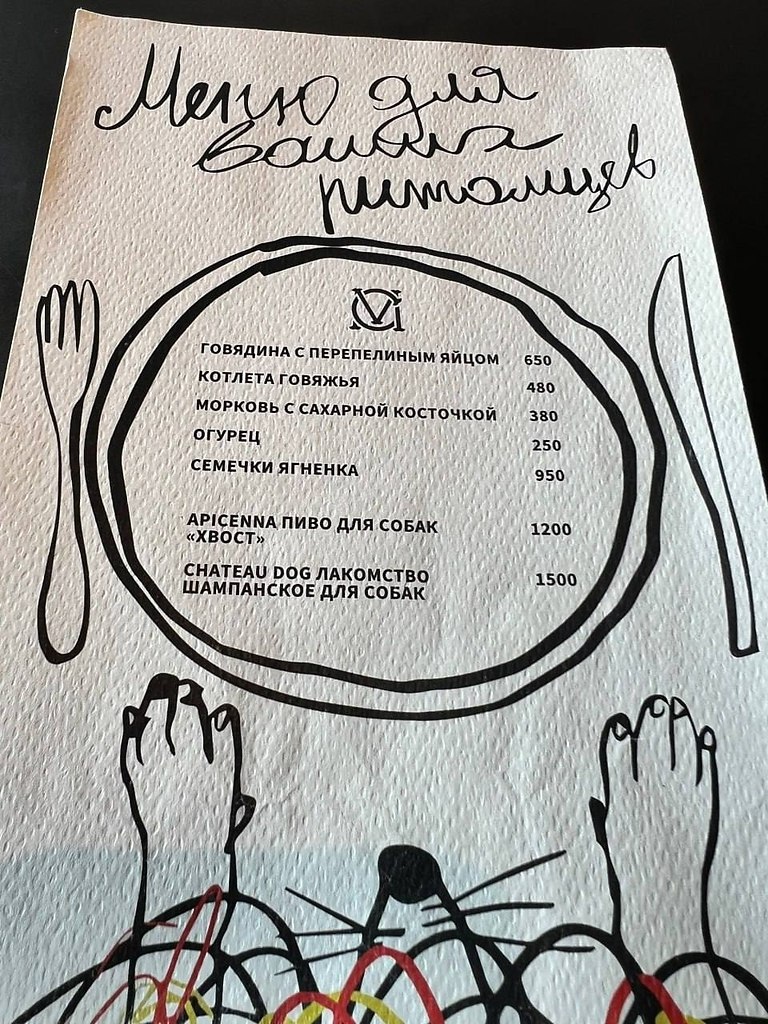 Меню для
ваших
питомцев
ГОВЯДИНА С ПЕРЕПЕЛИНЫМ ЯЙЦОМ 650
КОТЛЕТА ГОВЯЖЬЯ 480
МОРКОВЬ С САХАРНОЙ КОСТОЧКОЙ 380
ОГУРЕЦ 250
СЕМЕЧКИ ЯГНЕНКА 950
APICENNA ПИВО ДЛЯ СОБАК 1200
«ХВОСТ»
CHATEAU DOG ЛАКОМСТВО 1500
ШАМПАНСКОЕ ДЛЯ СОБАК